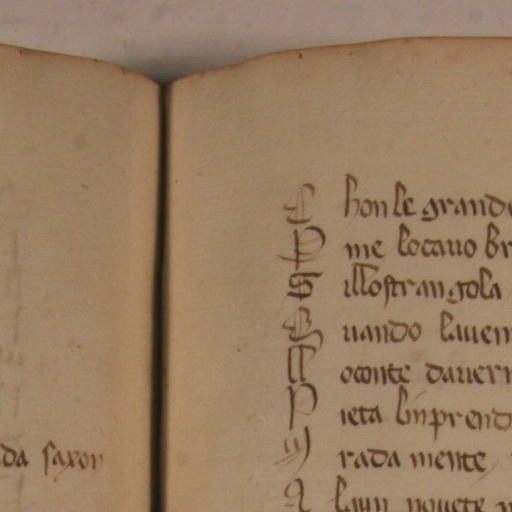 da saxon
C hon le grande
P me locauo br
S illostrangola
Q uando lauen
M oconte dauer
P ieta limprend
M rada mente
A laun nouete